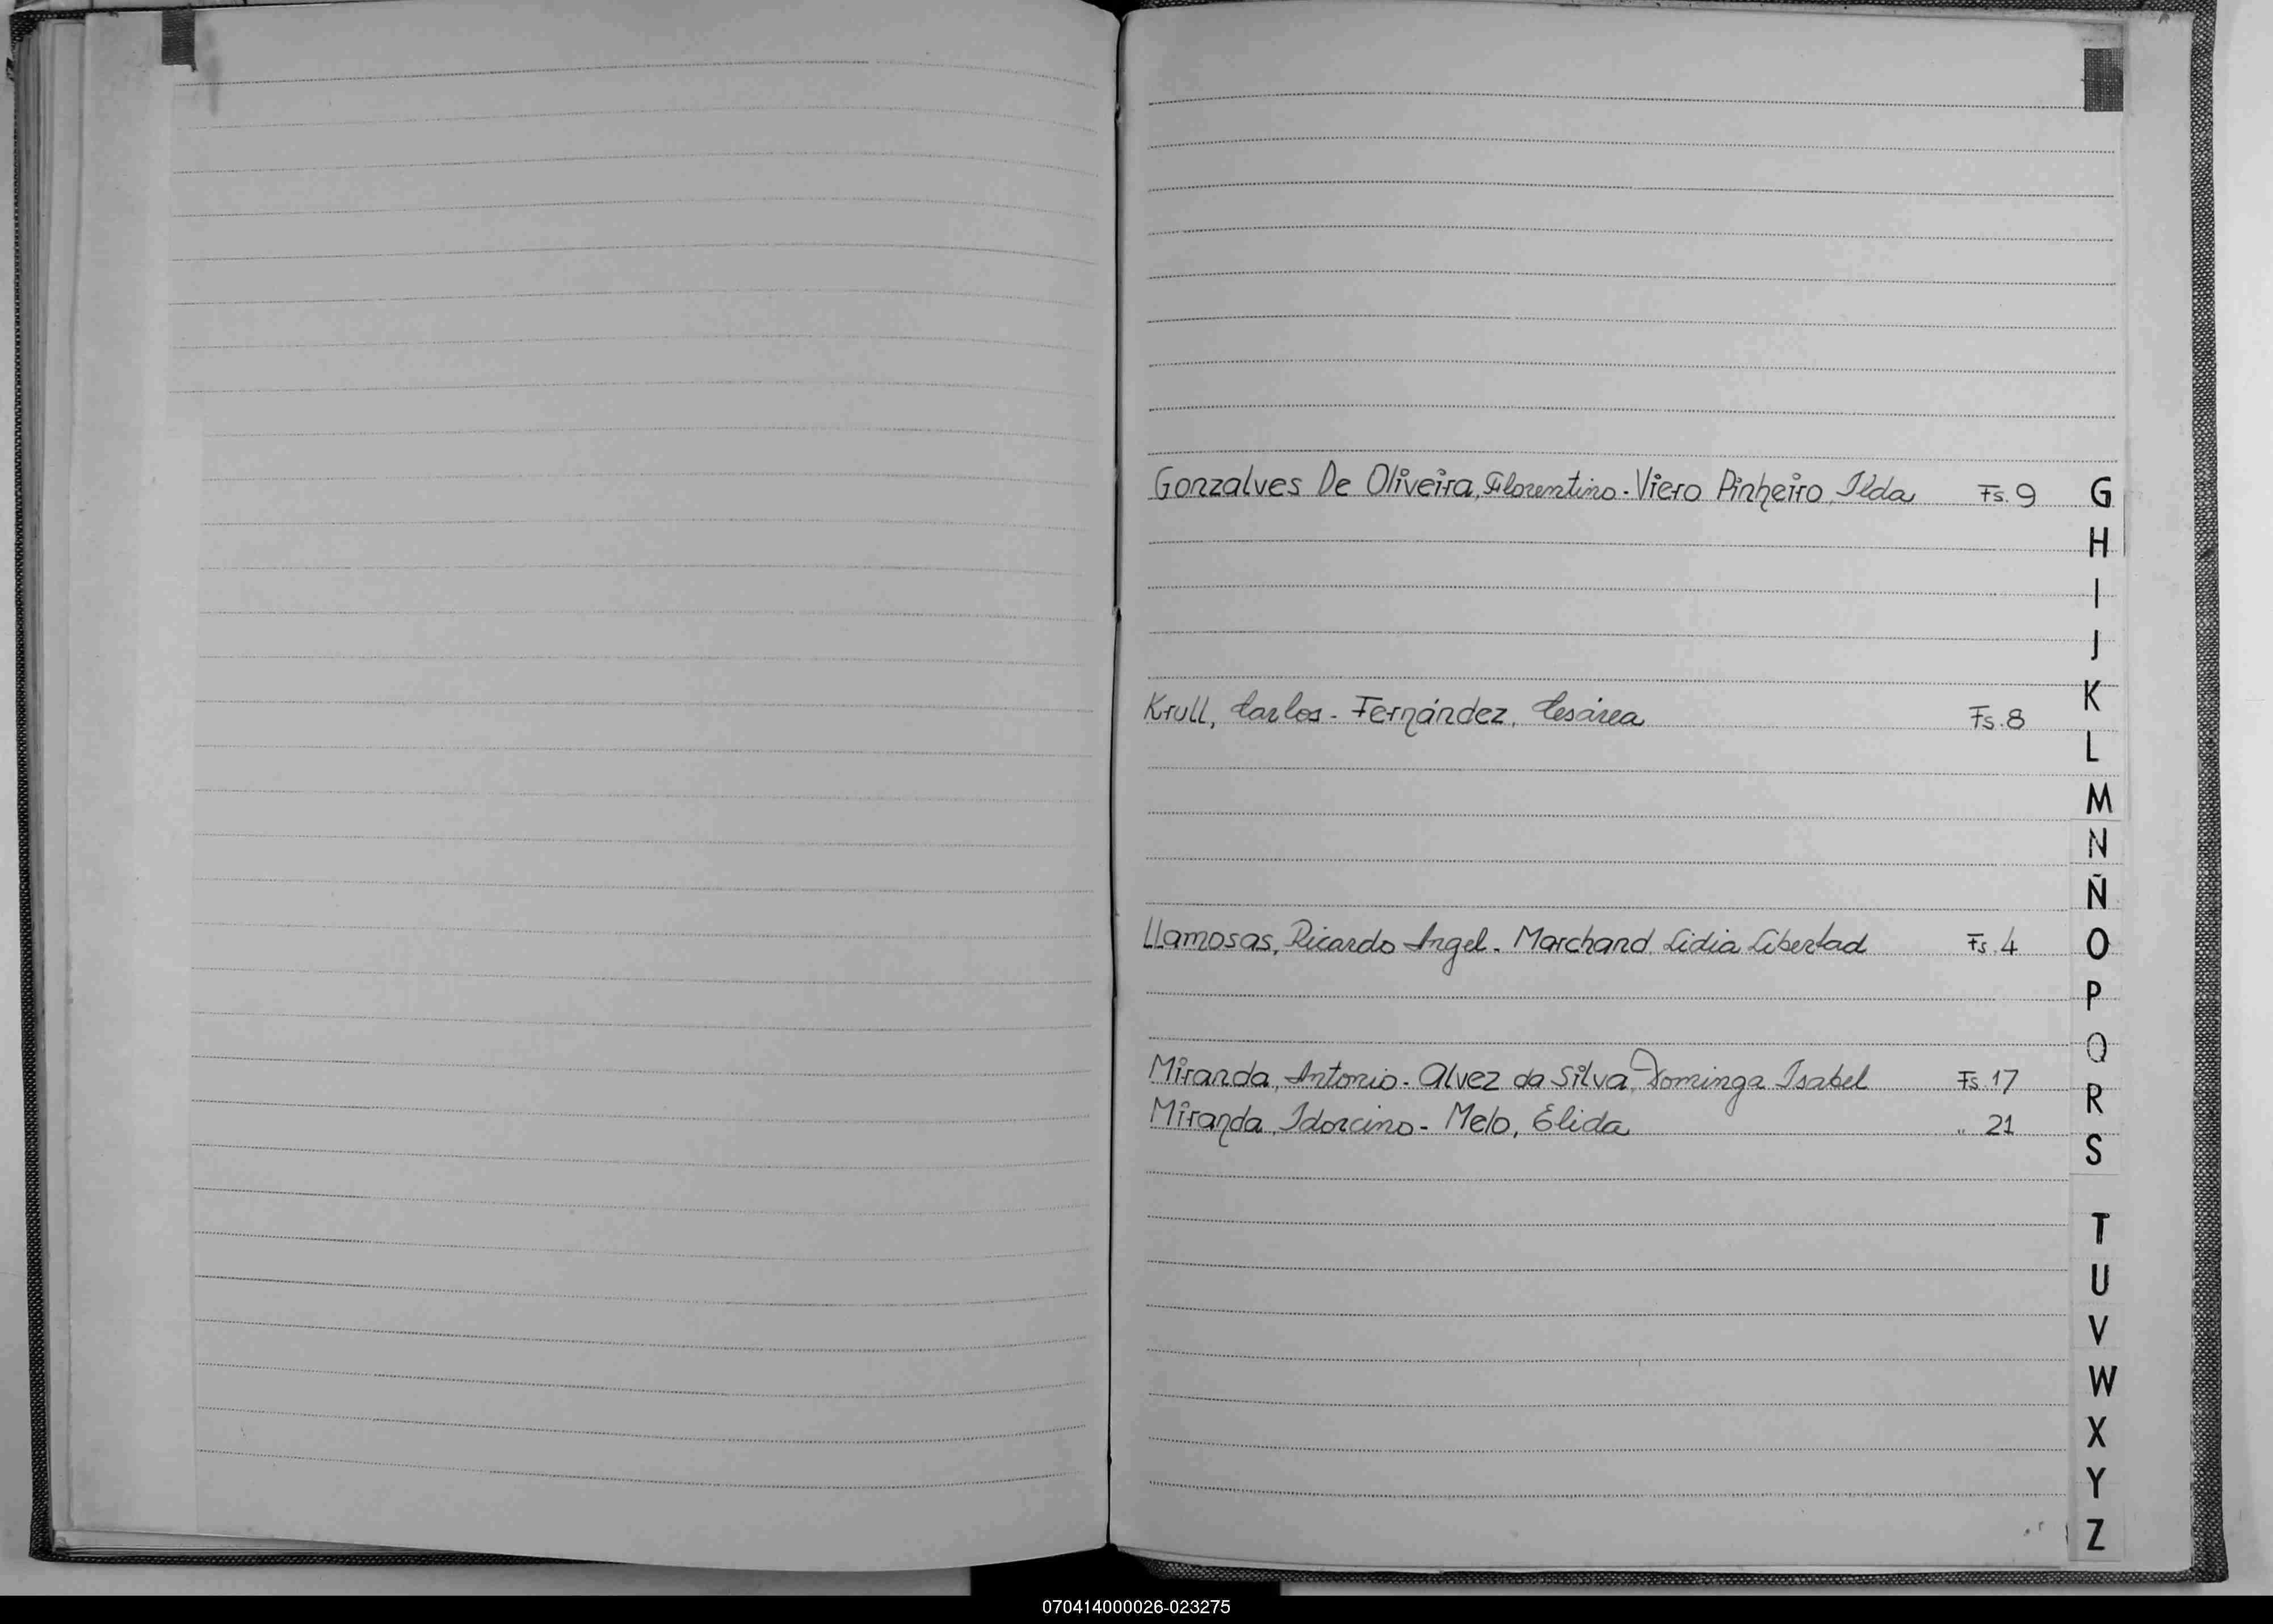 Gonzalves De Oliveira, Florentino - Viero Pinheiro, Ilda Fs. 9
G
H
I
J
K
Krull, Carlos - Fernández, Cesárea Fs. 8
L
M
N
Ñ
Llamosas, Ricardo Angel - Marchand, Lidia Libertad Fs. 4
O
P
Q
Miranda, Antonio - Alvez da Silva, Dominga Isabel Fs. 17
R
Miranda, Idorcino - Melo, Elida " 21
S
T
U
V
W
X
Y
Z
070414000026-023275